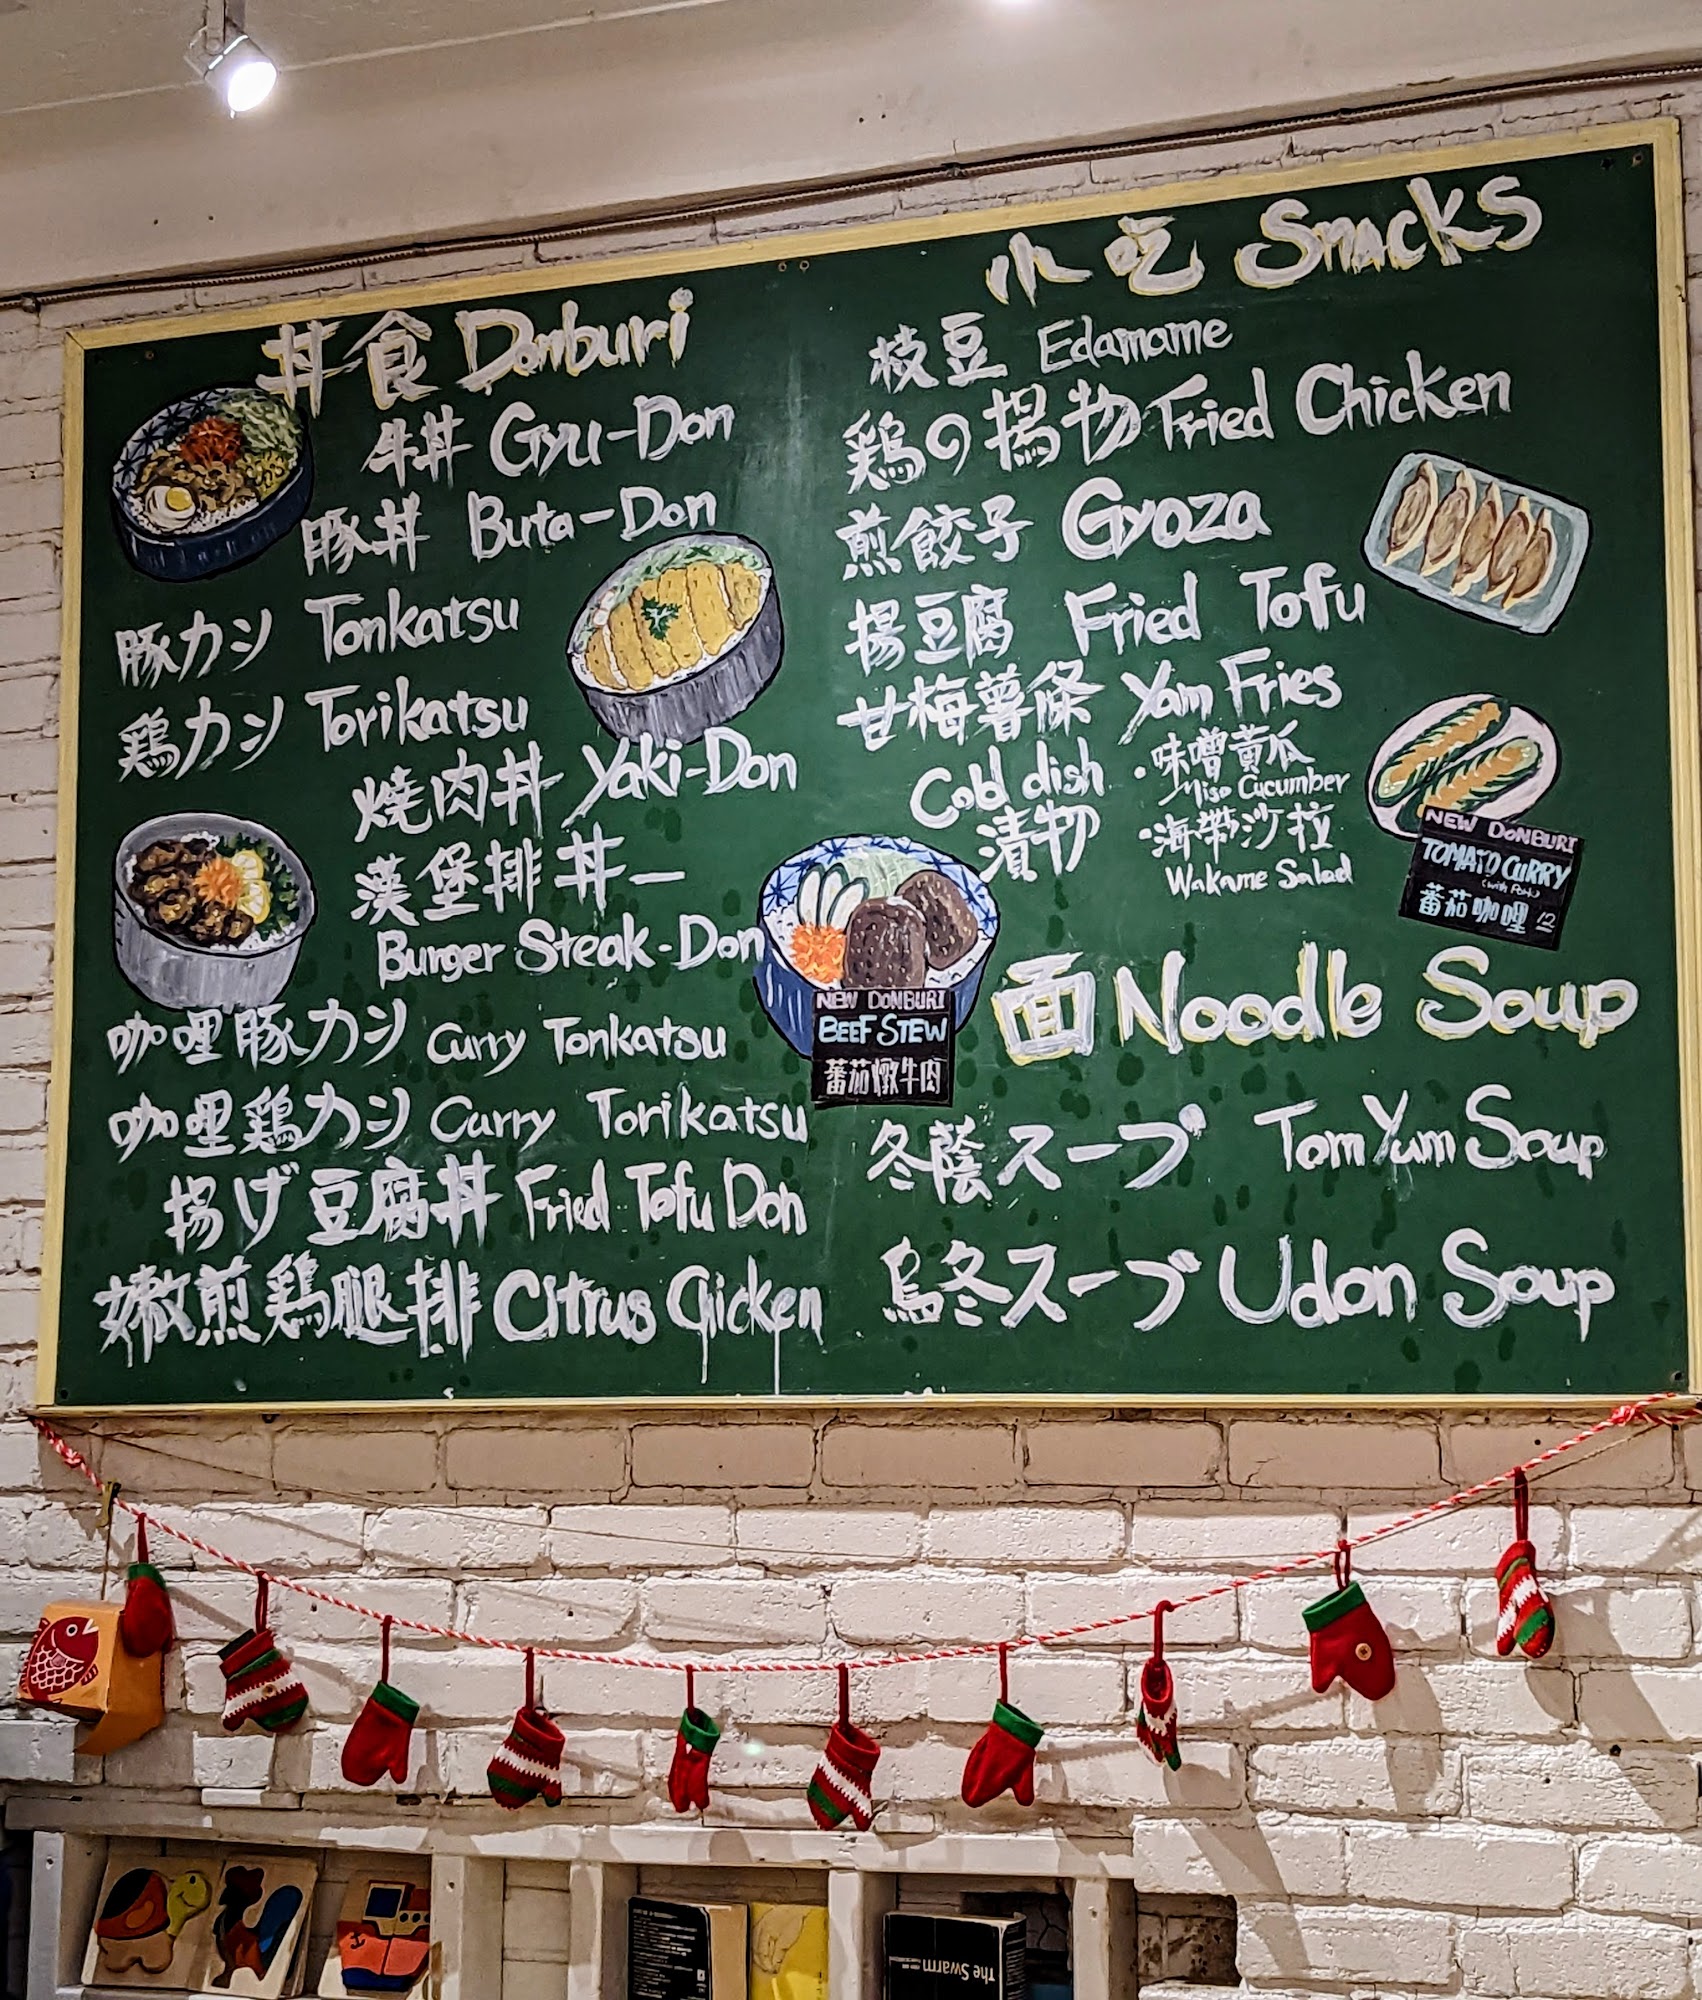 丼食 Donburi
牛丼 Gyu-Don
豚丼 Buta-Don
豚カシ Tonkatsu
鶏カシ Torikatsu
燒肉丼 Yaki-Don
漢堡排丼—
Burger Steak-Don
咖哩豚カシ Curry Tonkatsu
咖哩鶏カシ Curry Torikatsu
揚げ豆腐丼 Fried Tofu Don
嫩煎鶏腿排 Citrus Chicken
NEW DONBURI
BEEF STEW
蕃茄燉牛肉
小吃 Snacks
枝豆 Edamame
鶏の揚物 Fried Chicken
煎餃子 Gyoza
揚豆腐 Fried Tofu
甘梅薯條 Yam Fries
Cold dish
漬物
・味噌黃瓜
Miso Cucumber
・海帶沙拉
Wakame Salad
NEW DONBURI
TOMATO CURRY
(with Pork)
蕃茄咖哩 12
面 Noodle Soup
冬蔭スープ Tom Yum Soup
烏冬スープ Udon Soup
The Swarm